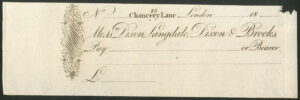 No 25 Chancery Lane London 18
Messrs Dixon Langdale, Dixon & Brooks
Pay or Bearer
£